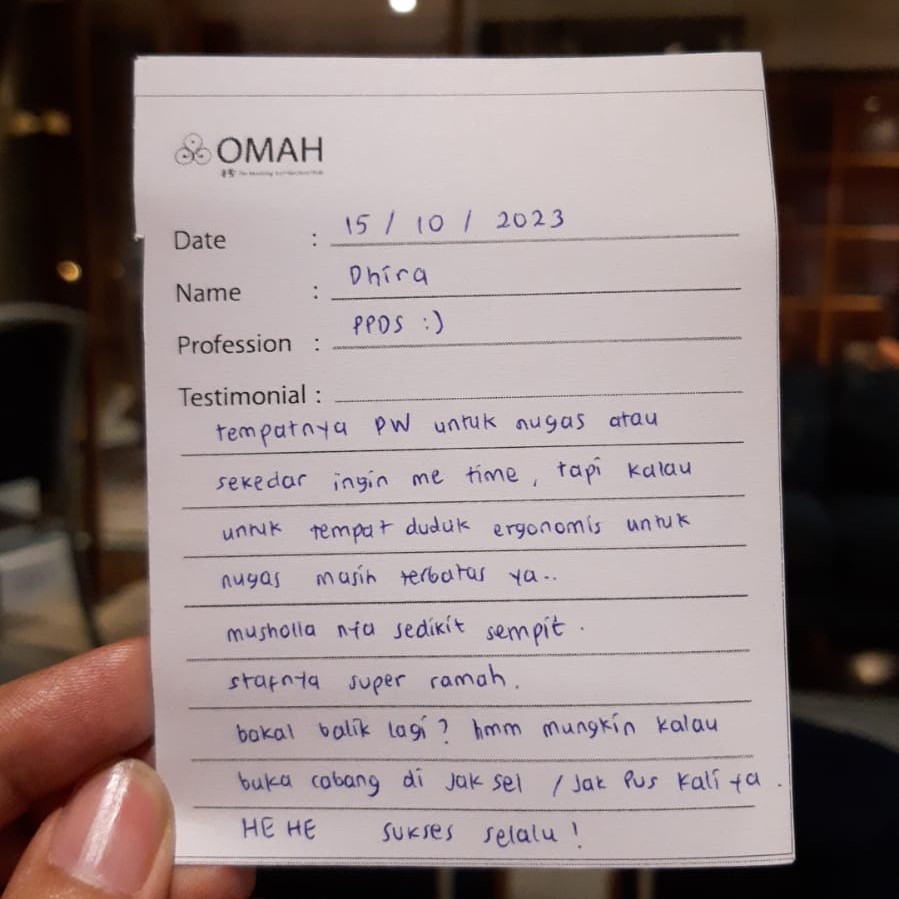 OMAH
Date : 15 / 10 / 2023
Name : Dhira
Profession : PPDS :)
Testimonial :
tempatnya PW untuk nugas atau
sekedar ingin me time, tapi kalau
untuk tempat duduk ergonomis untuk
nugas masih terbatas ya..
musholla nya sedikit sempit.
stafnya super ramah.
bakal balik lagi? hmm mungkin kalau
buka cabang di Jak sel / Jak Pus kali ya.
HE HE sukses selalu!